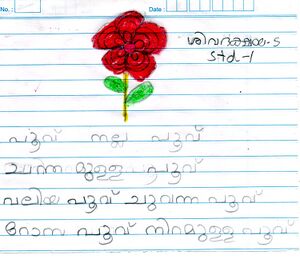 No.:
Date :
Std-1
പൂവ് നല്ല പൂവ്
ചന്ത മുള്ള പൂവ്
വലിയ പൂവ് ചുവന്ന പൂവ്
റോസ പൂവ് നിറമുള്ള പൂവ്